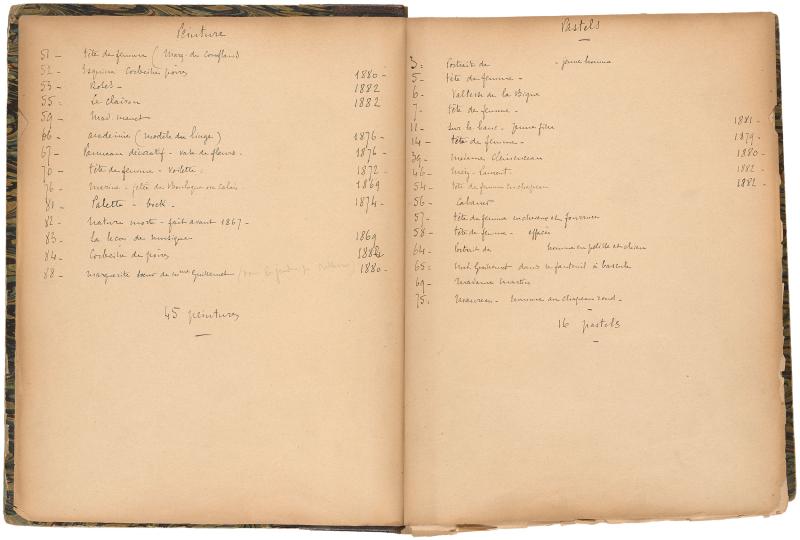 Peinture
51 - Tête de femme (Marq. de Conflans)
52 - Esquisse Corbeille poires 1880 -
53 - Roses - 1882
55 : Le clairon 1882
59 - Mad. Manet
66 - académie (modèle du linge) 1876 -
67 - Panneau décoratif - vase de fleurs. 1876 -
70 - Tête de femme - voilette. 1872 -
76 - Marine - jetée de Boulogne ou Calais 1869
81 - Palette - bock - 1874 -
82 - nature morte - fait avant 1867 -
83 - La leçon de musique 1869
84 - Corbeille de poires 1882
88 - Marguerite soeur de Mme Guillemet 1880 -
45 peintures
Pastels
3 : Portrait de - jeune homme
5 - Tête de femme -
6 - Valtesse de la Bigne
7 - Tête de femme -
11 - Sur le banc - jeune fille 1881 -
14 - Tête de femme - 1879 -
39 - Madame Clémenceau 1880 -
46 - Méry - Laurent 1882 -
54 - Tête de femme en chapeau 1882 -
56 - Cabaner
57 - Tête de femme en cheveux et fourrures
58 - Tête de femme - effacée
64 - Portrait de homme en pelisse et chien
65 : Melle Guillemet dans un fauteuil à bascule
69 - Madame Martin
75 : Moureau - homme au chapeau rond -
16 pastels